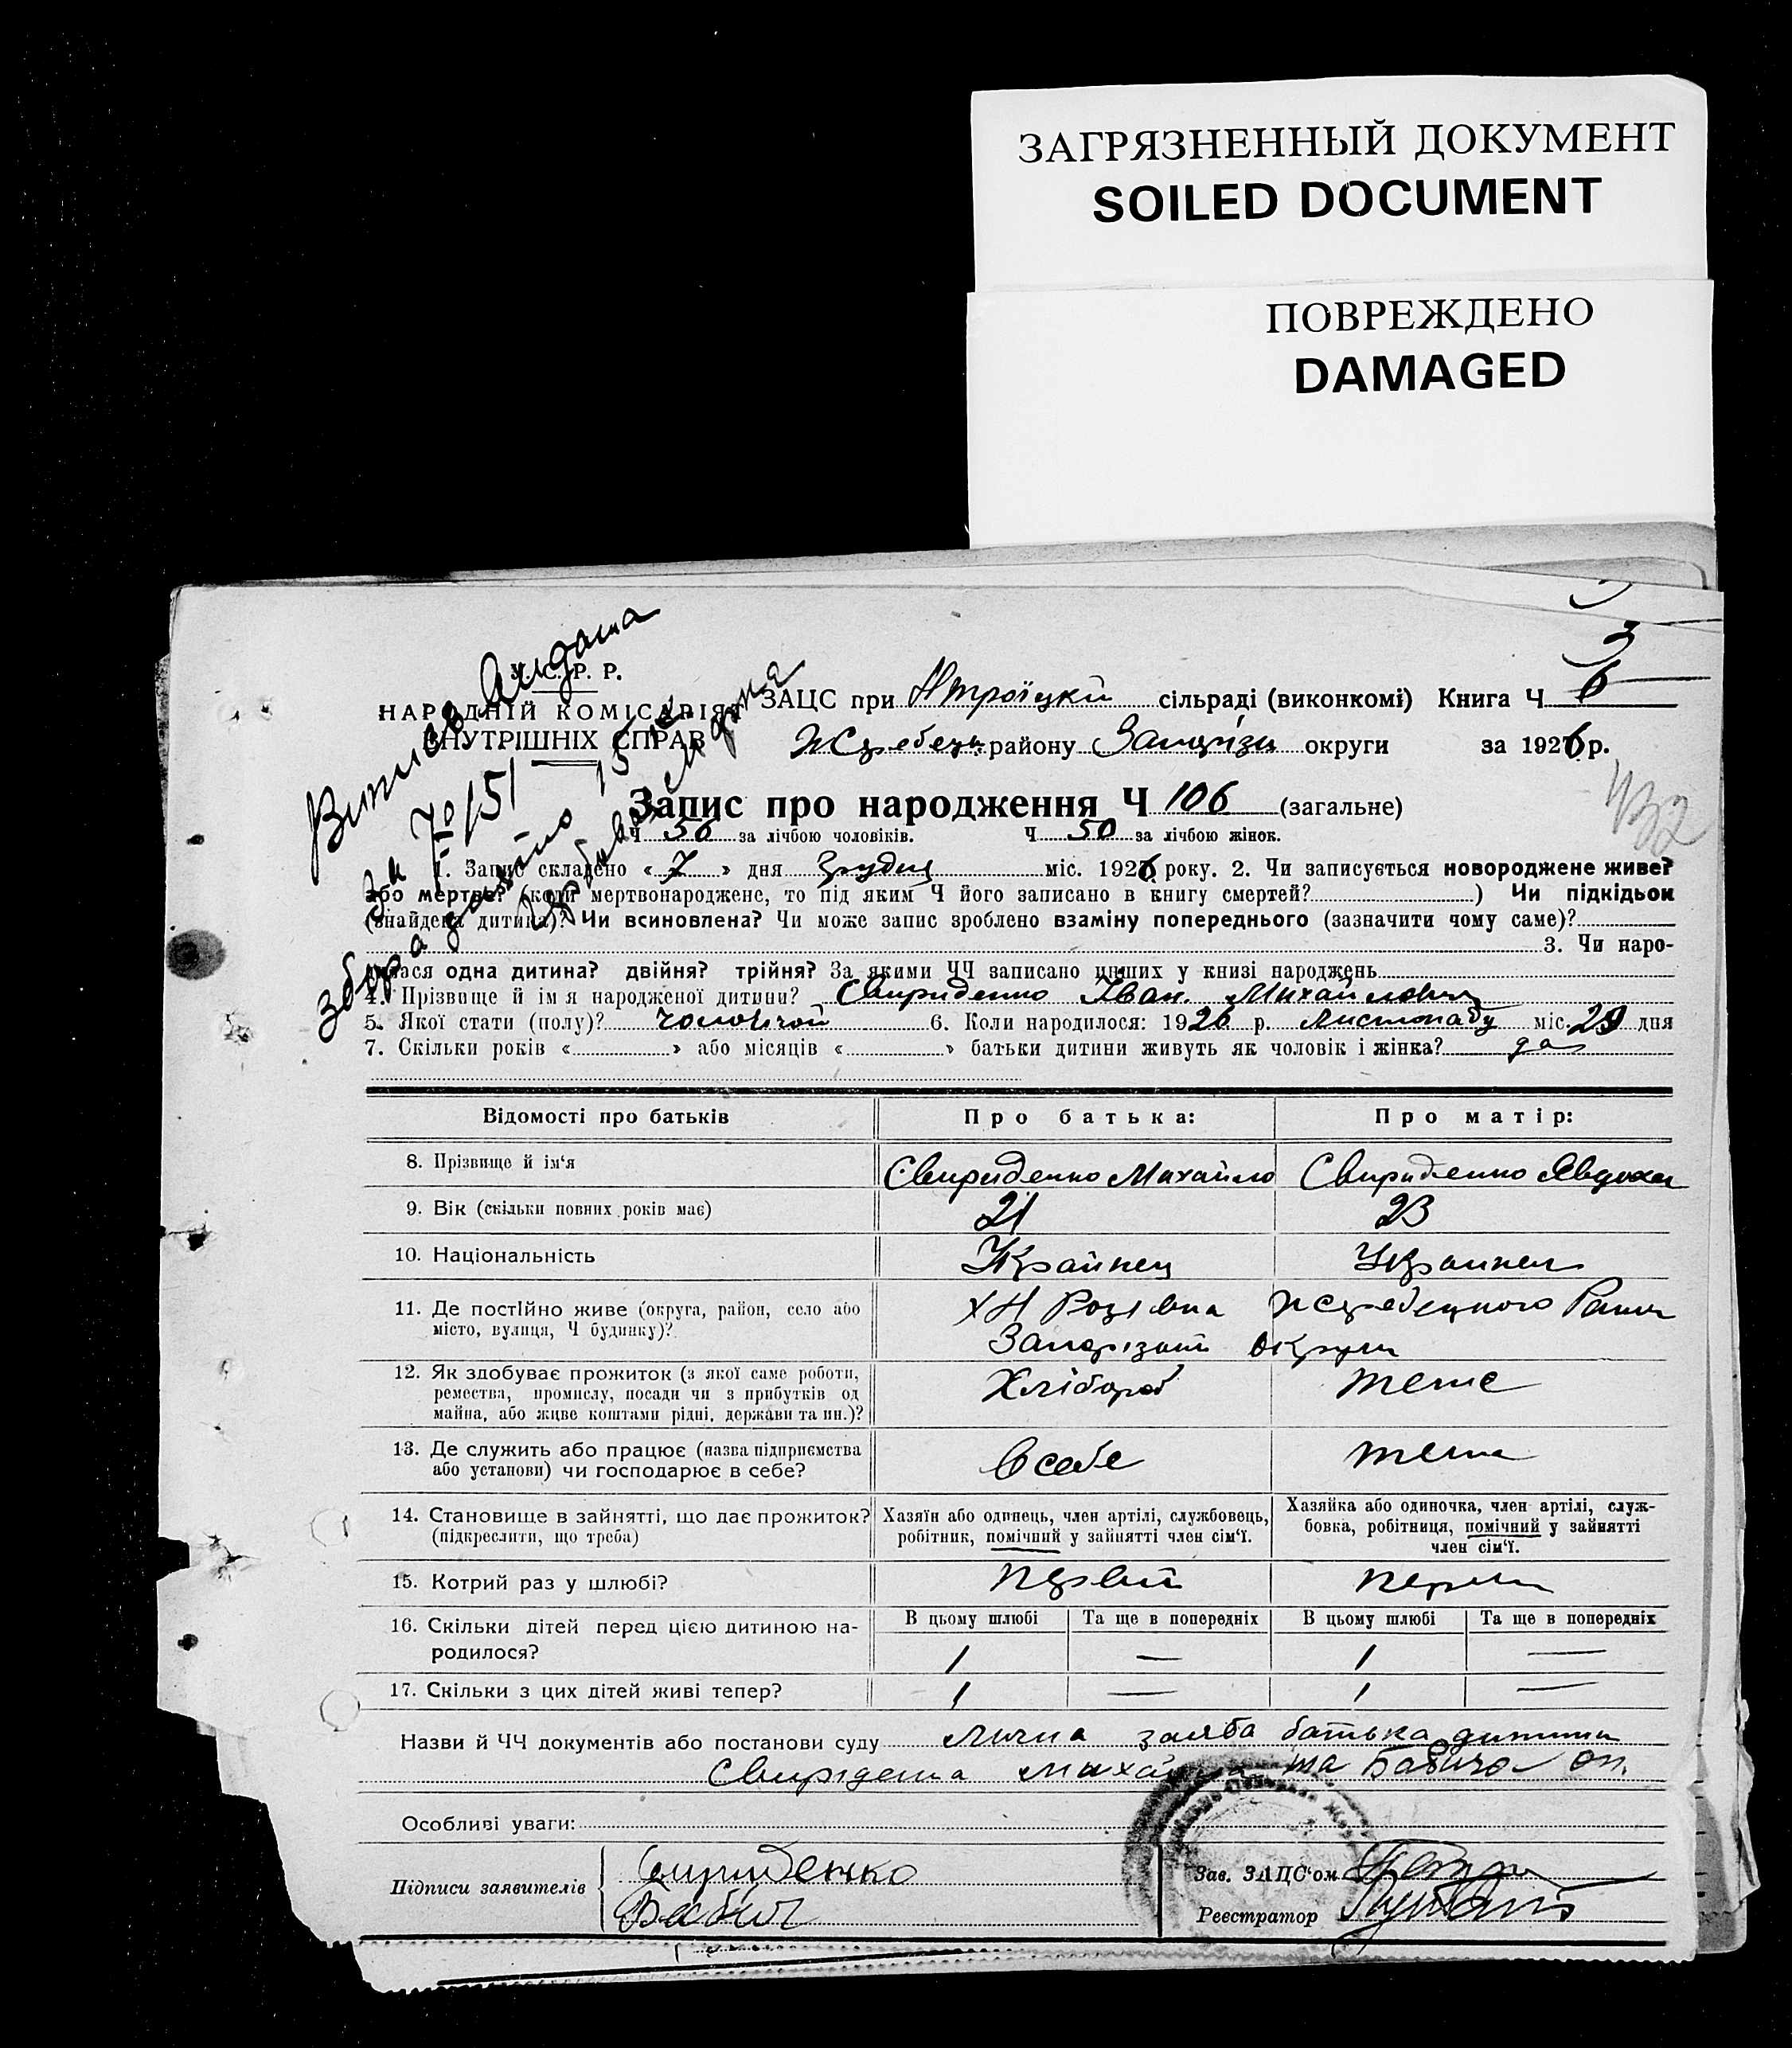 ЗАГРЯЗНЕННЫЙ ДОКУМЕНТ
SOILED DOCUMENT
ПОВРЕЖДЕНО
DAMAGED
3
У. С. Р. Р.
НАРОДНІЙ КОМІСАРІЯТ
ВНУТРІШНІХ СПРАВ
ЗАЦС при Нтроїцкій сільраді (виконкомі) Книга Ч 6
району округи за 1926 р.
Запис про народження Ч 106 (загальне)
Ч 56 за лічбою чоловіків. Ч 50 за лічбою жінок.
1. Запис складено « 7 » дня Грудня міс. 1926 року. 2. Чи записується новороджене живе?
або мертве? (коли мертвонароджене, то під яким Ч його записано в книгу смертей? ) Чи підкідьок
(знайдена дитина)? Чи всиновлена? Чи може запис зроблено взаміну попереднього (зазначити чому саме)?
3. Чи наро-
дилася одна дитина? двійня? трійня? За якими ЧЧ записано инших у книзі народжень
4. Прізвище й ім'я народженої дитини? Свириденко Іван Михайлович
5. Якої стати (полу)? 6. Коли народилося: 1926 р. Листопаду міс. 29 дня
7. Скільки років « » або місяців « » батьки дитини живуть як чоловік і жінка? да
Відомості про батьків Про батька: Про матір:
8. Прізвище й ім'я Свириденко Михайло Свириденко Явдоха
9. Вік (скільки повних років має) 21 23
10. Національність Украйнец
11. Де постійно живе (округа, район, село або
місто, вулиця, Ч будинку)?
12. Як здобуває прожиток (з якої саме роботи, Хлібороб теше
ремества, промислу, посади чи з прибутків од
майна, або живе коштами рідні, держави та ин.)?
13. Де служить або працює (назва підприємства в себе
або установи) чи господарює в себе?
14. Становище в зайнятті, що дає прожиток? Хазяїн або одинець, член артілі, службовець, Хазяйка або одиночка, член артілі, служ-
(підкреслити, що треба) робітник, помічний у зайнятті член сім'ї. бовка, робітниця, помічний у зайнятті
член сім'ї.
15. Котрий раз у шлюбі? первий
16. Скільки дітей перед цією дитиною на- В цьому шлюбі Та ще в попередніх В цьому шлюбі Та ще в попередніх
родилося? 1 — 1 —
17. Скільки з цих дітей живі тепер? 1 — 1 —
Назви й ЧЧ документів або постанови суду батька дитини
Михайла та
Особливі уваги:
Підписи заявителів Свириденко Зав. ЗАЦС'ом
Бабич Реєстратор